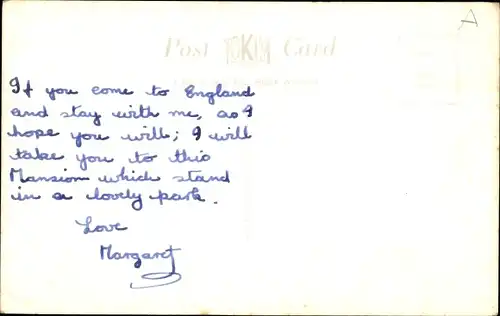 A
Post Card
If you come to England
and stay with me, as I
hope you will; I will
take you to this
Mansion which stand
in a lovely park.
Love
Margaret